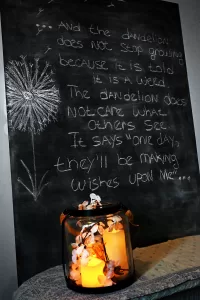 ...And the dandelion
does not stop growing
because it is told
it is a weed.
The dandelion does
not care what
others see.
It says "one day,
they'll be making
wishes upon me"...